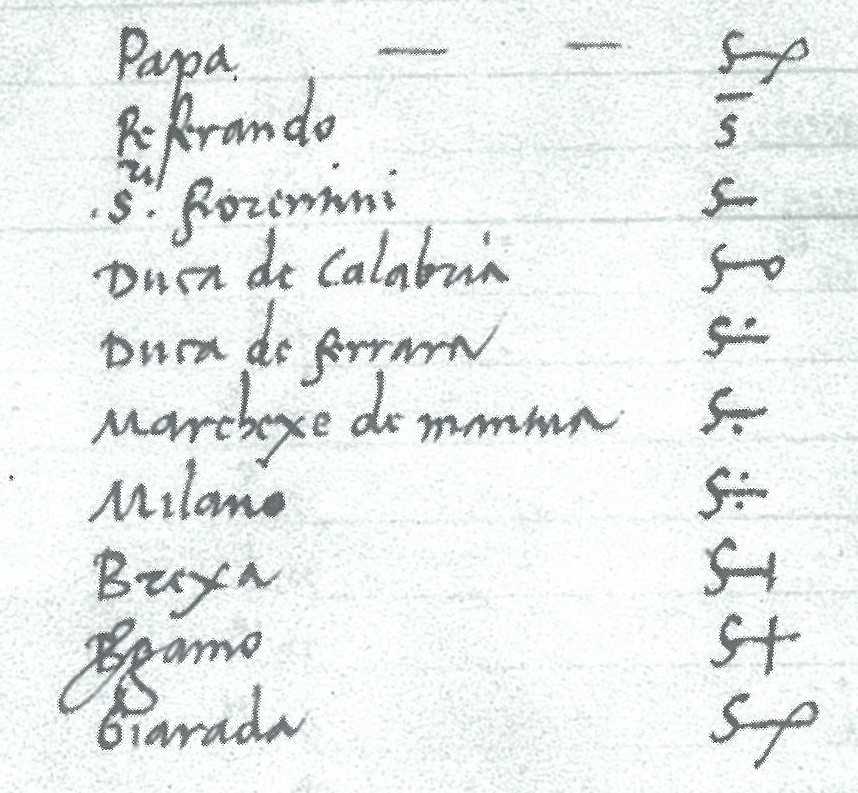 Papa — —
Re ferando
.S.ri fiorentini
Duca de Calabria
Duca de ferrara
Marchexe de mantua
Milano
Brexa
Bgamo
Giarada